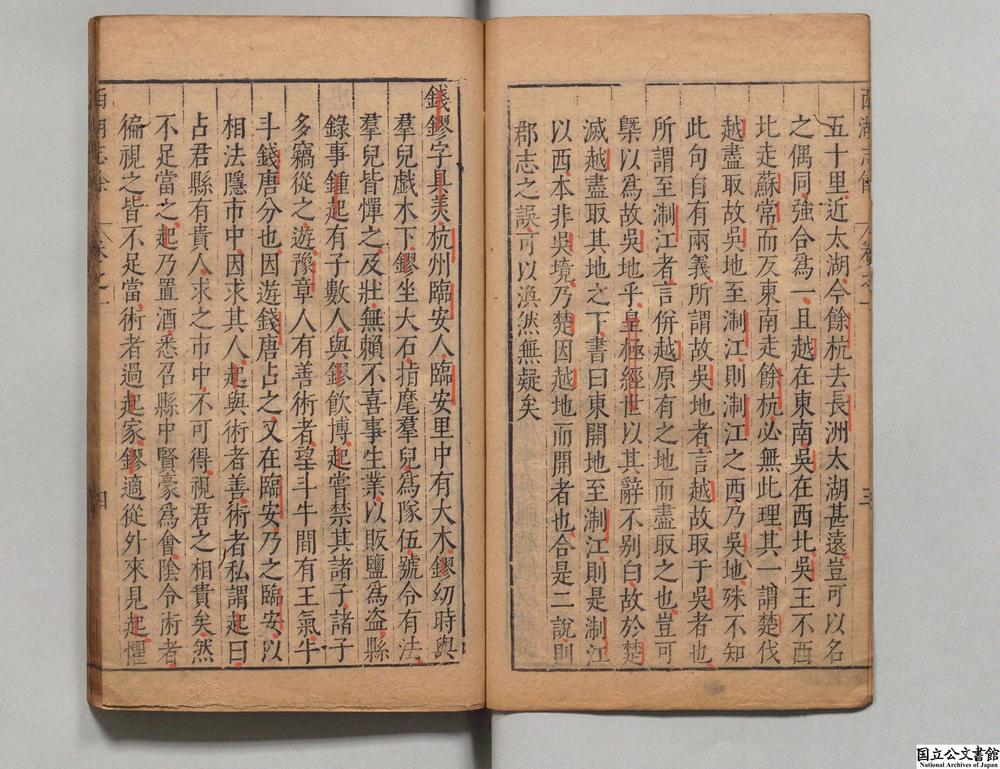 五十里近太湖今餘杭去長洲太湖甚遠豈可以名
之偶同強合爲一且越在東南吳在西北吳王不西
北走蘇常而反東南走餘杭必無此理其一謂楚伐
越盡取故吳地至淛江則淛江之西乃吳地殊不知
此句自有兩義所謂故吳地者言越故取于吳者也
所謂至淛江者言併越原有之地而盡取之也豈可
槩以爲故吳地乎皇極經世以其辭不别白故於楚
滅越盡取其地之下書曰東開地至淛江則是淛江
以西本非吳境乃楚因越地而開者也合是二說則
郡志之誤可以渙然無疑矣
錢鏐字具美杭州臨安人臨安里中有大木鏐幼時與
羣兒戲木下鏐坐大石指麾羣兒爲隊伍號令有法
羣兒皆憚之及壯無賴不喜事生業以販鹽爲盗縣
錄事鍾起有子數人與鏐飲博起嘗禁其諸子諸子
多竊從之遊豫章人有善術者望斗牛間有王氣牛
斗錢唐分也因遊錢唐占之又在臨安乃之臨安以
相法隱市中因求其人起與術者善術者私謂起曰
占君縣有貴人求之市中不可得視君之相貴矣然
不足當之起乃置酒悉召縣中賢豪爲會陰令術者
徧視之皆不足當術者過起家鏐適從外來見起懼
西湖志餘 卷之一 三
西湖志餘 卷之一 四
国立公文書館
National Archives of Japan